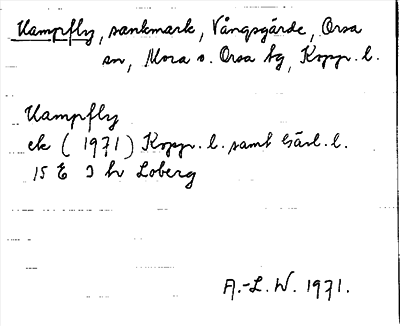 Kampfly, sankmark, Vångsgärde, Orsa
sn, Mora o. Orsa tg, Kopp. l.
Kampfly
ek (1971) Kopp. l. samt Gävl. l.
15 E 3 h Loberg
A.-L. W. 1971.